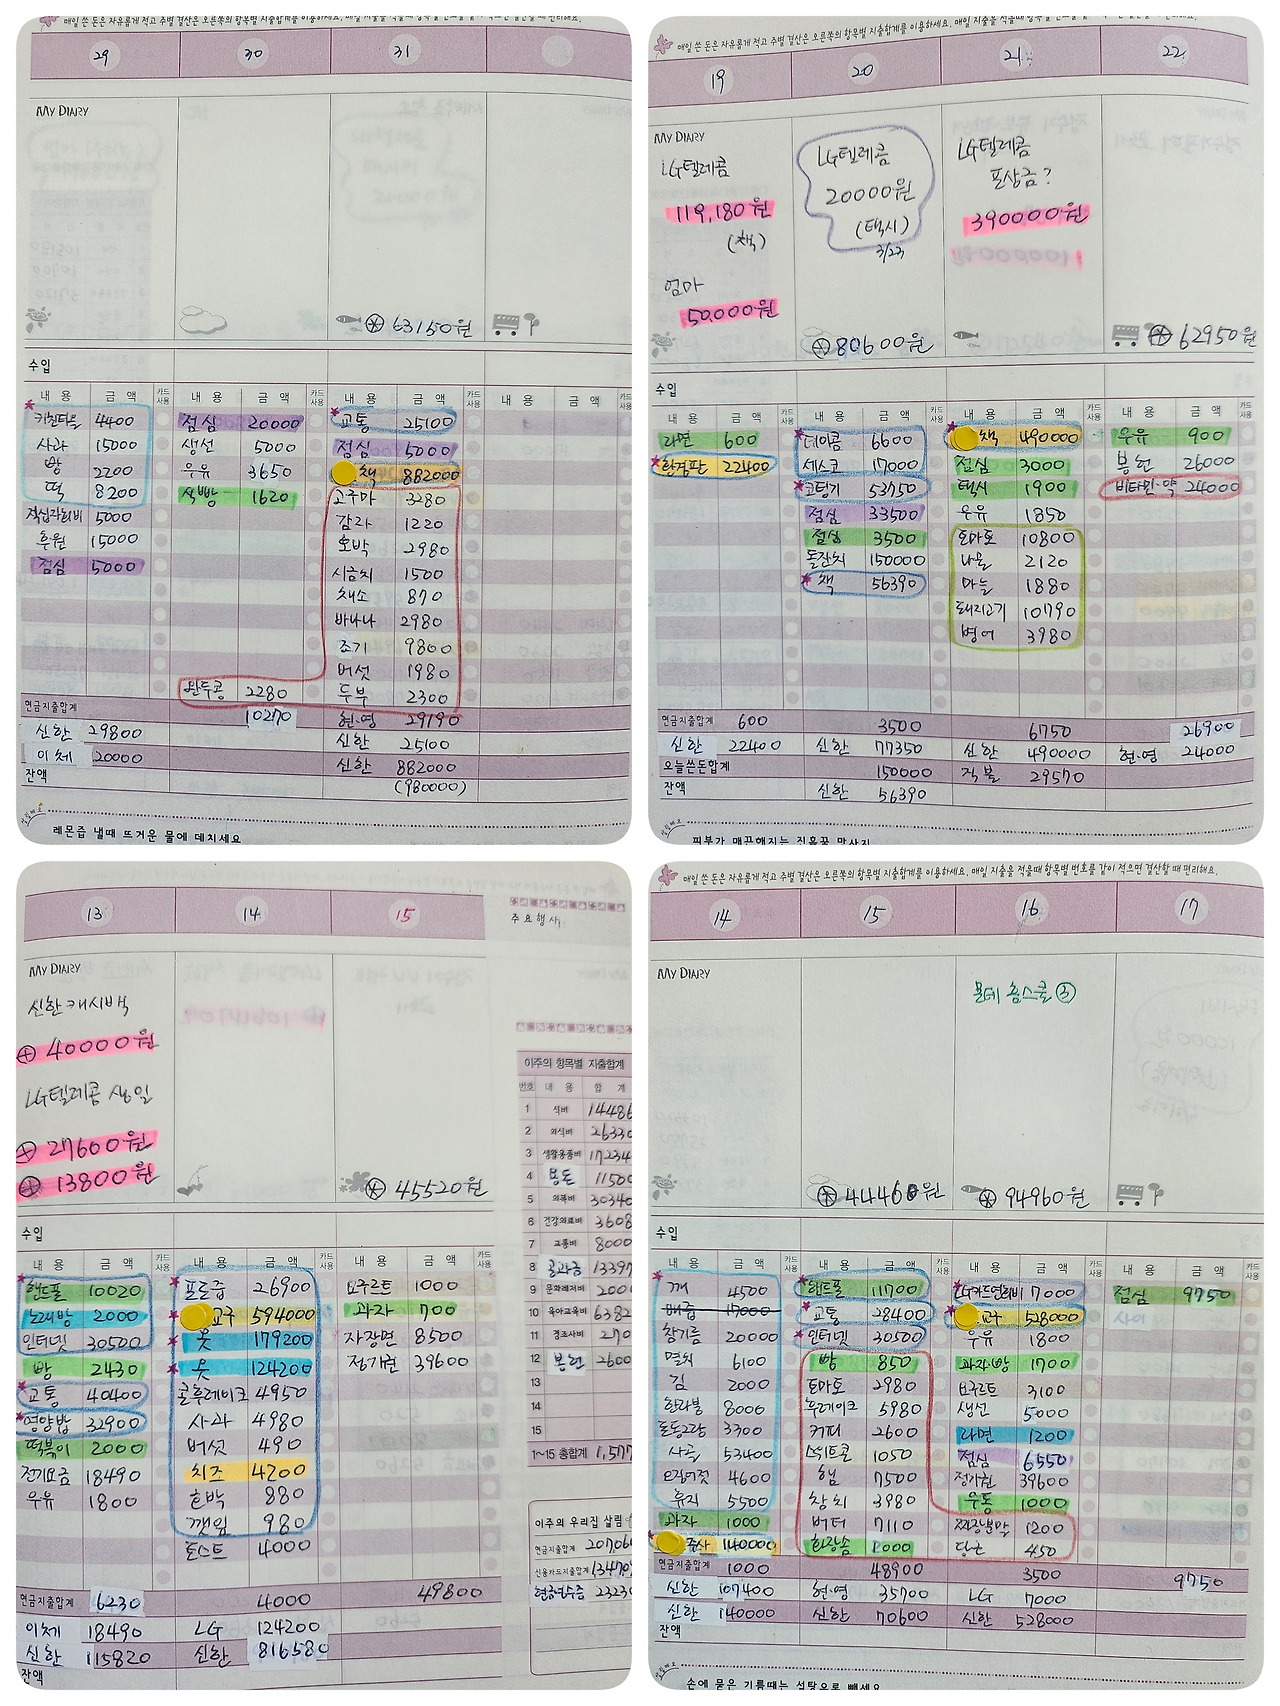 매일 쓴 돈은 자유롭게 적고 주별 결산은 오른쪽의 항목별 지출합계를 이용하세요.
29 30 31
MY DIARY
63150원
수입
내 용 금 액 카드사용 내 용 금 액 카드사용 내 용 금 액 카드사용 내 용 금 액 카드사용
키친타올 4400 점심 20000 교통 25100
사과 15000 생선 5000 점심 5000
빵 2200 우유 3650 책 882000
떡 8200 식빵 1620 고구마 3280
적십자회비 5000 감자 1220
후원 15000 호박 2980
점심 5000 시금치 1500
채소 870
바나나 2980
조기 9800
버섯 1980
완두콩 2280 두부 2300
현금지출합계 10270 현·영 29190
신한 29800 신한 25100
이체 20000 신한 882000
잔액 (980000)
레몬즙 낼때 뜨거운 물에 데치세요
매일 쓴 돈은 자유롭게 적고 주별 결산은 오른쪽의 항목별 지출합계를 이용하세요.
19 20 21 22
MY DIARY
LG텔레콤 LG텔레콤 LG텔레콤
119,180원 20000원 포상금?
(책) (택시) 390000원
3/23
엄마
50,000원
80600원 62950원
수입
내 용 금 액 카드사용 내 용 금 액 카드사용 내 용 금 액 카드사용 내 용 금 액 카드사용
라면 600 데이콤 6600 책 490000 우유 900
환경판 22400 세스코 17000 점심 3000 봉헌 26000
코팅기 53750 택시 1900 비타민·약 24000
점심 33500 우유 1850
점심 3500 토마토 10800
돌잔치 150000 나물 2120
책 56390 마늘 1880
돼지고기 10790
병어 3980
현금지출합계 600 3500 6750 26900
신한 22400 신한 77350 신한 490000 현·영 24000
오늘쓴돈합계 150000 직불 29570
잔액 신한 56390
피부가 매끈해지는 진흙꿀 맛사지
13 14 15
주요행사
MY DIARY
신한 캐시백
40000원
LG텔레콤 생일
27600원
13800원
45520원
수입
내 용 금 액 카드사용 내 용 금 액 카드사용 내 용 금 액 카드사용
핸드폴 10020 프로즙 26900 요구르트 1000
노래방 2000 교구 594000 과자 700
인터넷 30500 옷 179200 자장면 8500
빵 2430 옷 124200 정기권 39600
교통 40400 콘후레이크 4950
영양밥 32900 사과 4980
떡볶이 2000 버섯 490
전기요금 18490 치즈 4200
우유 1800 호박 880
깻잎 980
토스트 4000
현금지출합계 6230 4000 49800
이체 18490 LG 124200
신한 115820 신한 816580
잔액
이주의 항목별 지출합계
번호 내 용 합 계
1 식비 14486
2 외식비 26330
3 생활용품비 17234
4 용돈 11500
5 의복비 30340
6 건강의료비 3608
7 교통비 8000
8 공과금 13397
9 문화레저비 2000
10 육아교육비 6382
11 경조사비 270
12 봉헌 2600
13
14
15
1~15 총합계 1,577
이주의 우리집 살림
현금지출합계 207,06
신용카드지출합계 13470
현금영수증 2323
매일 쓴 돈은 자유롭게 적고 주별 결산은 오른쪽의 항목별 지출합계를 이용하세요. 매일 지출을 적을때 항목별 번호를 같이 적으면 결산할 때 편리해요.
14 15 16 17
MY DIARY
몬테 홈스쿨 ③
44460원 94960원
수입
내 용 금 액 카드사용 내 용 금 액 카드사용 내 용 금 액 카드사용 내 용 금 액 카드사용
깨 4500 핸드폴 11700 LG카드연회비 7000 점심 9750
배즙 17000 교통 28400 교구 528000
참기름 20000 인터넷 30500 우유 1800
멸치 6100 빵 850 과자빵 1700
김 2000 토마토 2980 요구르트 3100
한라봉 8000 후레이크 5980 생선 5000
돌돌2랑 3300 커피 2600 라면 1200
사골 53400 스위트콘 1050 점심 6550
오징어젓 4600 햄 7500 정기권 39600
휴지 5500 참치 3980 우동 1000
과자 1000 버터 7110 짜장분말 1200
주사 140000 화장솜 1000 당근 450
현금지출합계 1000 48900 3500 9750
신한 107400 현·영 35700 LG 7000
신한 140000 신한 70600 신한 528000
잔액
손에 묻은 기름때는 설탕으로 빼세요